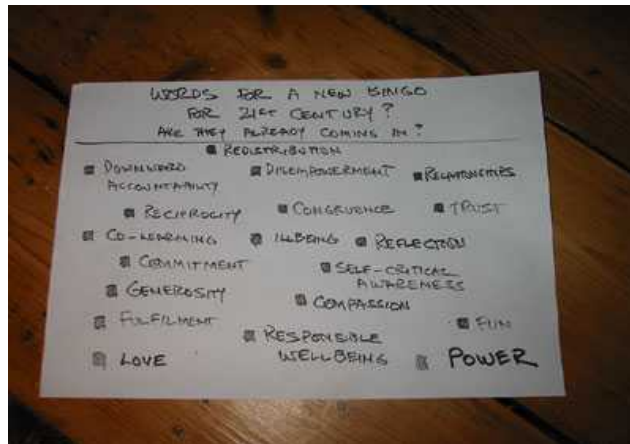 WORDS FOR A NEW BINGO
FOR 21ST CENTURY?
ARE THEY ALREADY COMING IN?
REDISTRIBUTION
DOWNWARD ACCOUNTABILITY
DISEMPOWERMENT
RELATIONSHIPS
RECIPROCITY
CONGRUENCE
TRUST
CO-LEARNING
ILLBEING
REFLECTION
COMMITMENT
SELF-CRITICAL AWARENESS
GENEROSITY
COMPASSION
FULFILMENT
FUN
RESPONSIBLE WELLBEING
LOVE
POWER